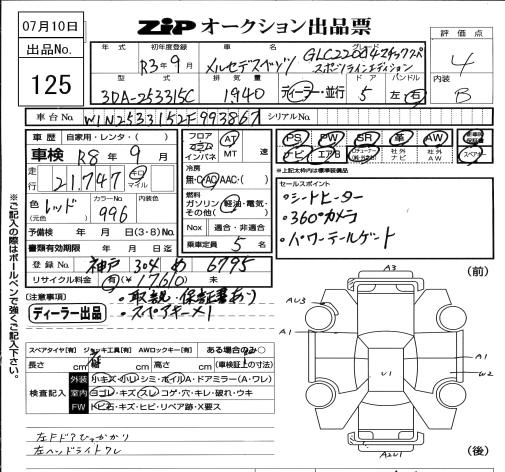 07月10日
ZIP オークション出品票
出品No.
125
年式
初年度登録
R3年9月
車名
メルセデスベンツ
グレード
GLC220d4マチックスペ
スポーツラインエディション
評価点
4
内装
B
型式
3DA-253315C
排気量
1,940
ディーラー・並行
ドア
5
ハンドル
左・右
車台No.
W1N2533152F993867
シリアルNo.
車歴
自家用・レンタ・( )
車検
R8年9月
走行
21,747
キロ
マイル
色
(元色)
レッド
カラーNo.
996
内装色
予備検 年 月 日 (3・8) No.
書類有効期限 年 月 日迄
登録No.
神戸 304 め 6795
リサイクル料金 有(¥17610) 未
フロア
コラム
インパネ
AT
MT
速
冷房
無・C・AC・AAC・( )
燃料
ガソリン・軽油・電気・
その他( )
Nox 適合・非適合
乗車定員 5 名
PS PW SR 革 AW
ナビ エアB
社外ナビ
社外AW
スペアキー
*上記太枠内は標準装備品
セールスポイント
・シートヒーター
・360°カメラ
・パワーテールゲート
(注意事項)
・取説・保証書あり
・スペアキー×1
ディーラー出品
※ご記入の際はボールペンで強くご記入下さい。
スペアタイヤ[有] ジャッキ工具[有] AWロックキー[有] ある場合のみ○
長さ cm 幅 cm 高さ cm (車検証上の寸法)
検査記入
外装 小キズ・小レ・シミ・ホイルA・ドアミラー(A・ワレ)
室内 ヨゴレ・キズ・スレ・コゲ・穴・キレ・破れ・ウキ
FW トビ石・キズ・ヒビ・リペア跡・X要ス
左Fドアひっかかり
左ヘッドライトワレ
(前)
A3
AU3
A1
A1
W2
U1
A2U1
(後)